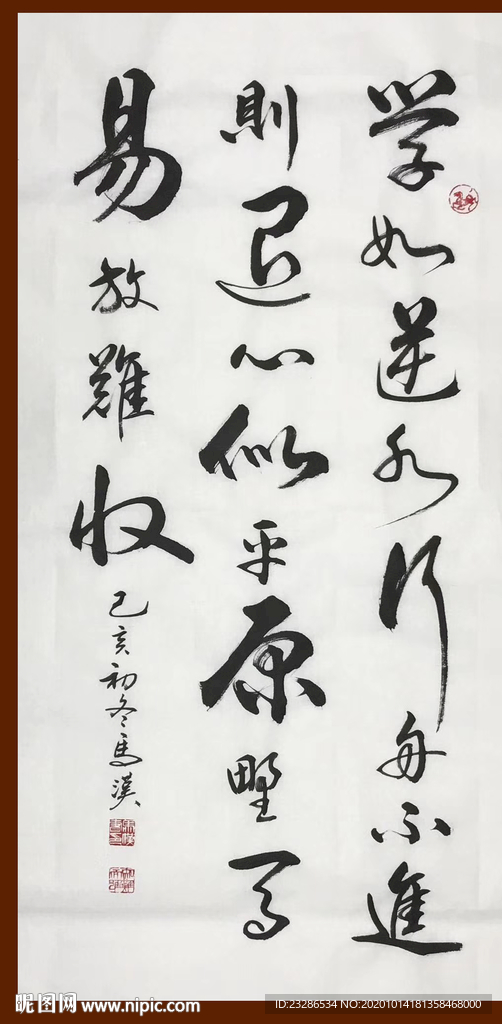 学如逆水行舟不進
則退心似平原野馬
易放難収
己亥初冬馬漢
昵图网 www.nipic.com
ID:23286534 NO:20201014181358468000